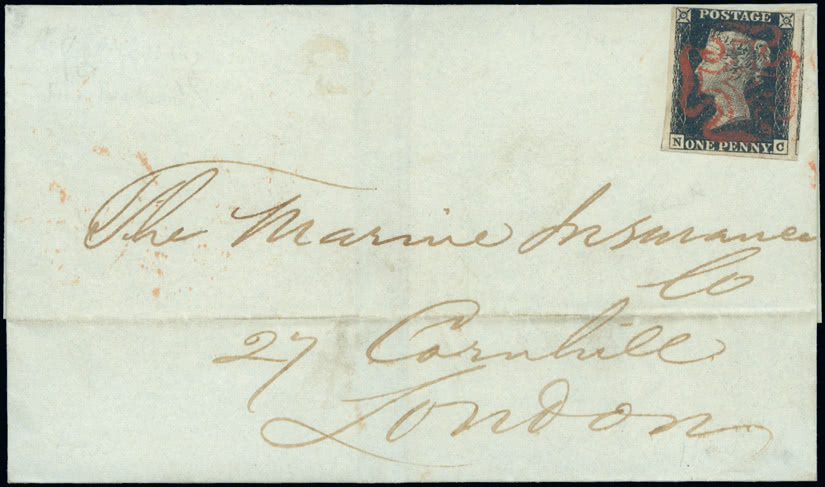 POSTAGE
N ONE PENNY C
The Marine Insurance
Co
27 Cornhill
London